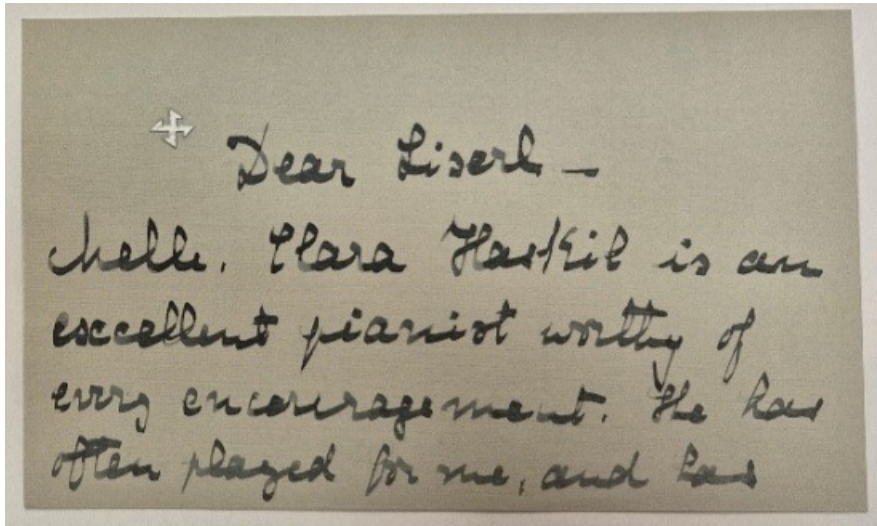 Dear Liserl —
Melle. Clara Haskil is an
excellent pianist worthy of
every encouragement. She has
often played for me, and has